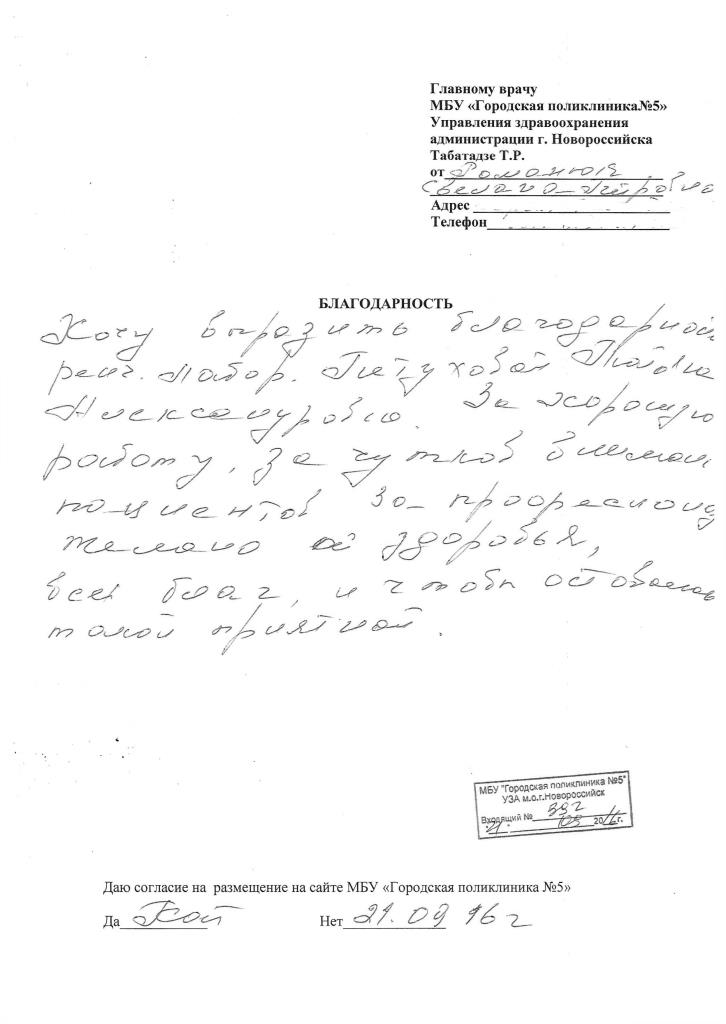 Главному врачу
МБУ «Городская поликлиника№5»
Управления здравоохранения
администрации г. Новороссийска
Табатадзе Т.Р.
от Романюк
Адрес
Телефон
БЛАГОДАРНОСТЬ
Хочу выразить благодарнос
Петуховой
За хорошую
работу, за чуткое
пациентов за
желаю ей здоровья,
всех благ, и чтобы
такой приятной.
МБУ "Городская поликлиника №5"
УЗА м.о.г.Новороссийск
Входящий № 392
20 16 г.
Даю согласие на размещение на сайте МБУ «Городская поликлиника №5»
Да Нет 21.09 16 г